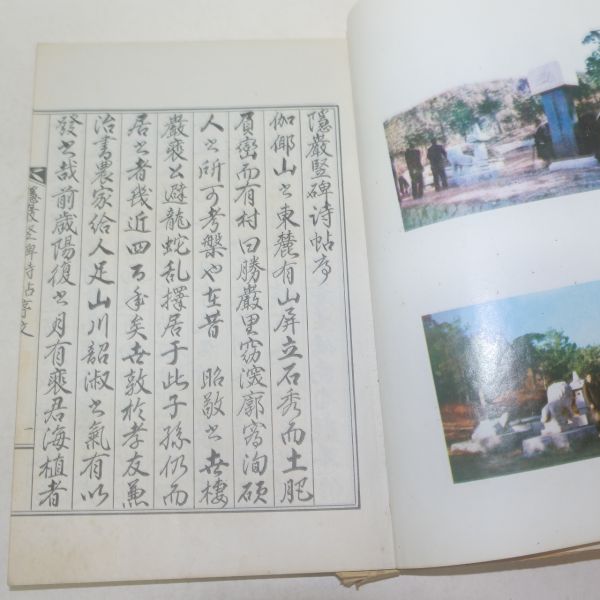 隱巖竪碑诗帖序
伽倻山之東麓有山屏立石秀而土肥
負巒而有村曰勝巖里窈深廓寬洵碩
人之所可考槃也在昔 昭敬之世棲
巖裵公避龍蛇乱擇居于此子孫仍而
居之者幾近四百年矣世敦於孝友兼
治書農家给人足山川韶淑之氣有以
發之哉前歲陽復之月有裵君海植者
隱巖竪碑诗帖序文
一